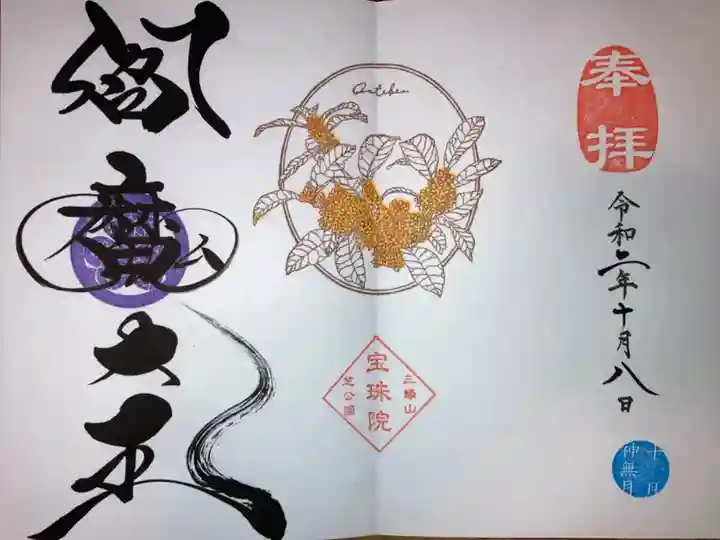 奉拝
令和二年十月八日
十月
神無月
October
三縁山
宝珠院
芝公園
閻魔大王